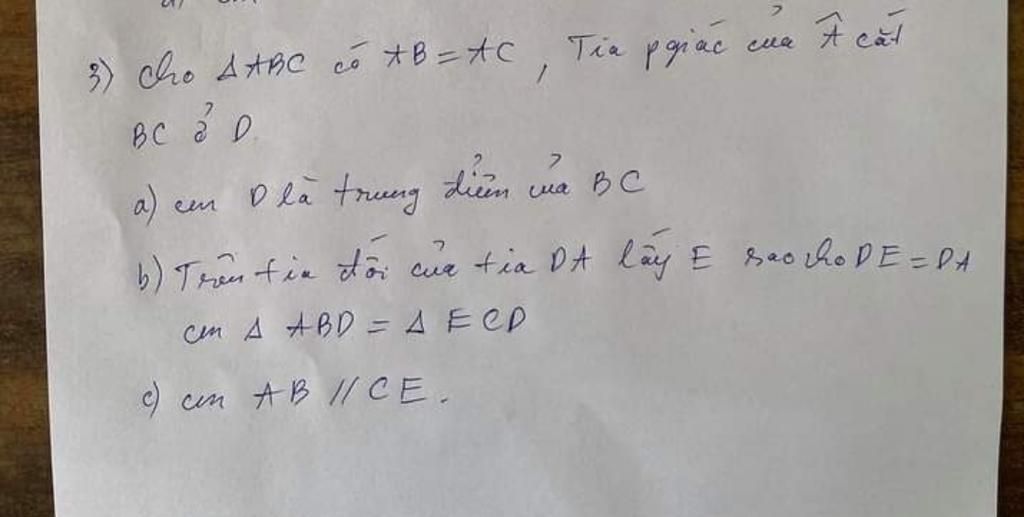 3) Cho △ABC có AB = AC, Tia pgiác của Â cắt
BC ở D.
a) cm D là trung điểm của BC
b) Trên tia đối của tia DA lấy E sao cho DE = DA
cm △ ABD = △ ECD
c) cm AB // CE.